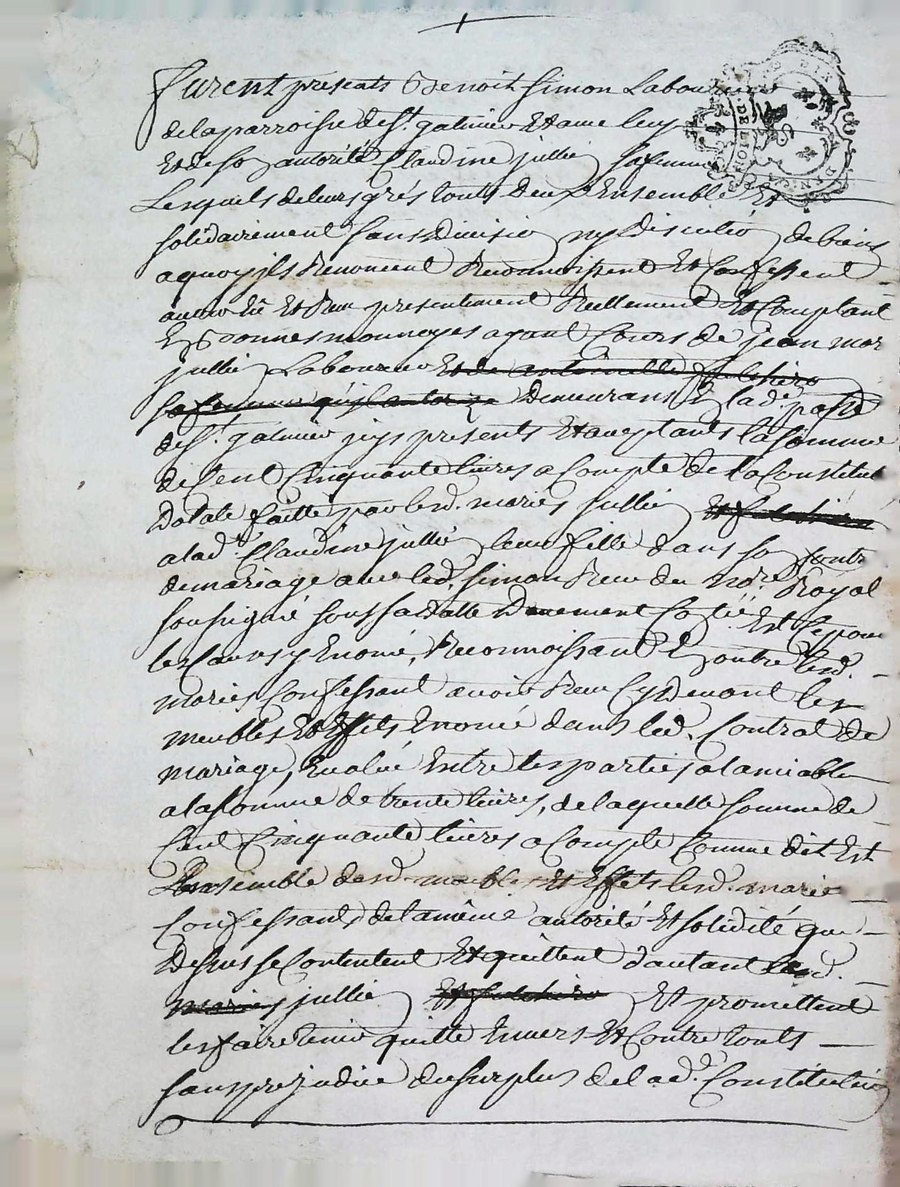 furent presents Benoit Simon Laboureur
de la parroisse de St. galmier Et avec luy
Et de son autorité Claudine jullien sa femme
Lesquels de leurs grés touts deux Ensemble Et
solidairement sans division ny discution de biens
a quoy ils Renoncent Reconnoissent Et Confessent
avoir Eu Et Reçu presentement Réellement Et Comptant
En bonnes monnoyes ayant Cours de jean mar
jullien Laboureur Et de antoinette fulchiro
sa femme qu'il autorize Demeurans En lade. passe
de St. galmier icy presents Et aceptants la somme
de Cent Cinquante livres a Compte de la Constitut
Dotale faitte par lesd. mariés jullien Et fulchiro
a lad. Claudine jullien leur fille dans son Contr
de mariage avec led. Simon Reçu du No.re Royal
soussigné sous sa Datte Duement Et Cy pour
les Causes y Enoncé, Reconnoissant En outre lesd.
mariés Confessant avoir Reçu Cydevant les
meubles Et Effets Enoncé dans led. Contrat de
mariage, Evalué Entre les parties a lamiable
a la somme de trente livres, de laquelle somme de
Cent Cinquante livres a Compte Comme dit Est
Ensemble desd. meubles Et Effets lesd. mariés
Confessants de la même autorité Et solidité que
Dessus se Contentent Et quittent d'autant lesd.
mariés jullien Et fulchiro Et promettent
les faire tenir quitte Envers Et Contre touts
sans prejudice du surplus de lad. Constitution
DE LION